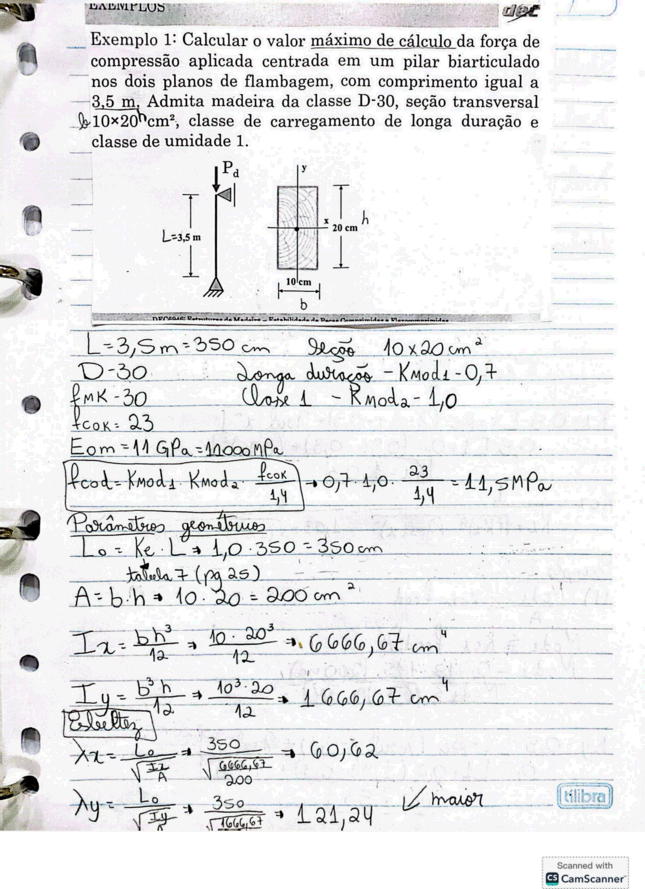 EXEMPLOS
dec
Exemplo 1: Calcular o valor máximo de cálculo da força de
compressão aplicada centrada em um pilar biarticulado
nos dois planos de flambagem, com comprimento igual a
3,5 m. Admita madeira da classe D-30, seção transversal
b 10×20 h cm², classe de carregamento de longa duração e
classe de umidade 1.
Pd
y
L=3,5 m
x
20 cm h
10 cm
b
DEC06946: Estruturas de Madeira – Estabilidade de Peças Comprimidas e Flexocomprimidas
L = 3,5m = 350 cm Seção 10x20 cm²
D-30 Longa duração - Kmod1 - 0,7
fMK - 30 Classe 1 - Kmod2 - 1,0
fcok = 23
Eom = 11 GPa = 11000 MPa
fcod = Kmod1 . Kmod2 . fcok/1,4 → 0,7 . 1,0 . 23/1,4 = 11,5MPa
Parâmetros geométricos
Lo = Ke . L → 1,0 . 350 = 350cm
tabela 7 (pg 25)
A = b.h → 10 . 20 = 200 cm²
Ix = bh³/12 → 10 . 20³/12 → 6666,67 cm⁴
Iy = b³h/12 → 10³ . 20/12 → 1666,67 cm⁴
Esbeltez
λx = Lo/√Ix/A → 350/√6666,67/200 → 60,62
λy = Lo/√Iy/A → 350/√1666,67 → 121,24 ↙ maior
tilibra
Scanned with
CS CamScanner